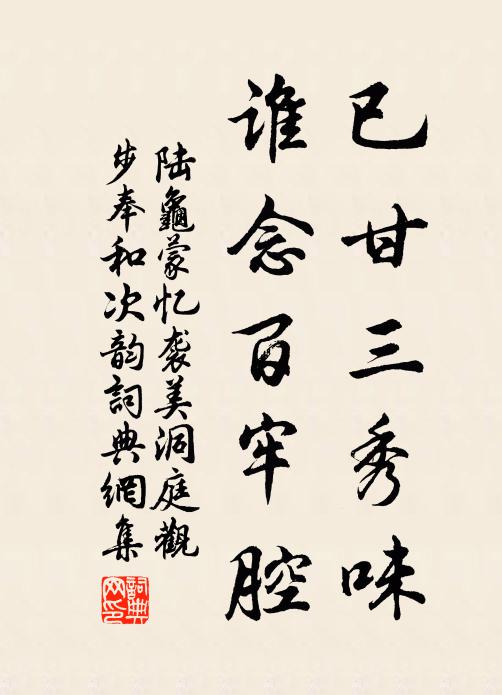 已甘三秀味
谁念百牢腔
陆龜蒙忆袭美洞庭觀
步奉和次韵詞典網集
詞典網印